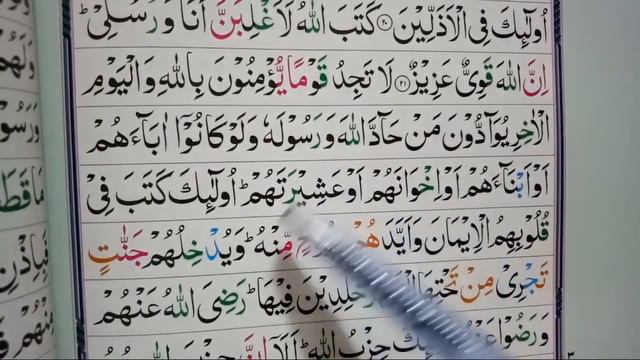 اُولٰٓئِكَ فِي الْاَذَلِّيْنَ ﴿۲۰﴾ كَتَبَ اللّٰهُ لَاَغْلِبَنَّ اَنَا وَرُسُلِيْ ؕ
اِنَّ اللّٰهَ قَوِيٌّ عَزِيْزٌ ﴿۲۱﴾ لَا تَجِدُ قَوْمًا يُّؤْمِنُوْنَ بِاللّٰهِ وَالْيَوْمِ
الْاٰخِرِ يُوَآدُّوْنَ مَنْ حَآدَّ اللّٰهَ وَرَسُوْلَهٗ وَلَوْ كَانُوْٓا اٰبَآءَهُمْ
اَوْ اَبْنَآءَهُمْ اَوْ اِخْوَانَهُمْ اَوْ عَشِيْرَتَهُمْ ؕ اُولٰٓئِكَ كَتَبَ فِيْ
قُلُوْبِهِمُ الْاِيْمَانَ وَاَيَّدَهُمْ مِّنْهُ ؕ وَيُدْخِلُهُمْ جَنّٰتٍ
تَجْرِيْ مِنْ تَحْتِهَا خٰلِدِيْنَ فِيْهَا ؕ رَضِيَ اللّٰهُ عَنْهُمْ
وَرَضُوْا حِزْبُ اللّٰهِ ؕ اَلَآ اِنَّ